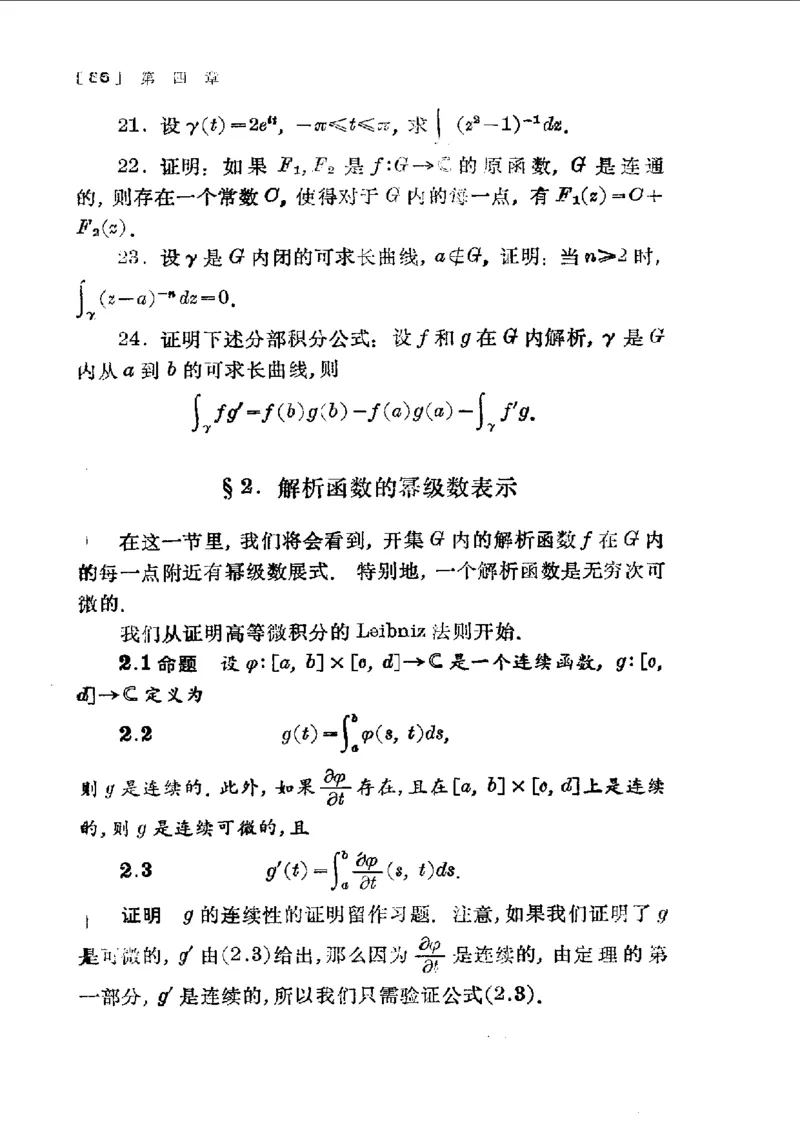 [86] 第四章
21. 设 γ(t)=2e^{it}, −π≤t≤π, 求∫(z²−1)⁻¹dz.
22. 证明: 如果 F₁, F₂ 是 f:G→ℂ 的原函数, G 是连通
的, 则存在一个常数 C, 使得对于 G 内的每一点, 有 F₁(z)=C+
F₂(z).
23. 设 γ 是 G 内闭的可求长曲线, a∉G, 证明: 当 n≥2 时,
∫_γ (z−a)⁻ⁿdz=0.
24. 证明下述分部积分公式: 设 f 和 g 在 G 内解析, γ 是 G
内从 a 到 b 的可求长曲线, 则
∫_γ fg′=f(b)g(b)−f(a)g(a)−∫_γ f′g.
§2. 解析函数的幂级数表示
在这一节里, 我们将会看到, 开集 G 内的解析函数 f 在 G 内
的每一点附近有幂级数展式. 特别地, 一个解析函数是无穷次可
微的.
我们从证明高等微积分的 Leibniz 法则开始.
2.1 命题 设 φ:[a, b]×[c, d]→ℂ 是一个连续函数, g:[c,
d]→ℂ 定义为
2.2 g(t)=∫_a^b φ(s, t)ds,
则 g 是连续的. 此外, 如果 ∂φ/∂t 存在, 且在[a, b]×[c, d]上是连续
的, 则 g 是连续可微的, 且
2.3 g′(t)=∫_a^b ∂φ/∂t (s, t)ds.
证明 g 的连续性的证明留作习题. 注意, 如果我们证明了 g
是可微的, g′ 由(2.3)给出, 那么因为 ∂φ/∂t 是连续的, 由定理的第
一部分, g′ 是连续的, 所以我们只需验证公式(2.3).